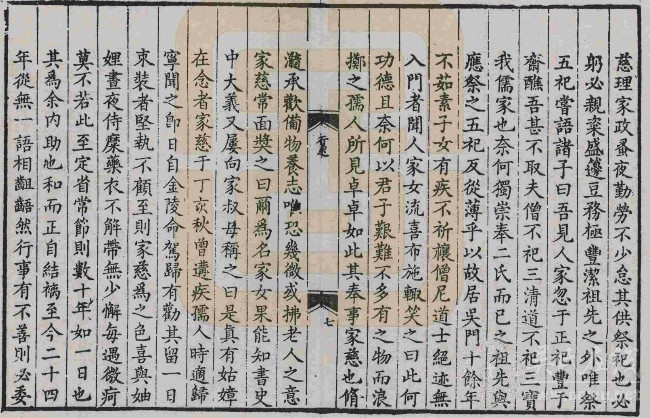 慈理家政蚤夜勤勞不少怠其供祭祀也必
躬必親粢盛籩豆務極豐潔祖先之外唯祭
五祀嘗語諸子曰吾見人家忽于正祀豐于
齋醮吾甚不取夫僧不祀三清道不祀三寶
我儒家也奈何獨崇奉二氏而已之祖先與
應祭之五祀反從薄乎以故居吳門十餘年
不茹素子女有疾不祈禳僧尼道士絕迹無
入門者聞人家女流喜布施輒笑之曰此何
功德且奈何以君子艱難不多有之物而浪
擲之孺人所見卓卓如此其奉事家慈也脩
瀡承歡備物養志唯恐幾微或拂老人之意
家慈常面獎之曰爾為名家女果能知書史
中大義又屢向家叔母稱之曰是真有姑嫜
在念者家慈于丁亥秋曾遘疾孺人時適歸
寧聞之卽日自金陵命駕歸有勸其留一日
束裝者堅執不顧至則家慈為之色喜與妯
娌晝夜侍糜藥衣不解帶無少懈每遇微疴
莫不若此至定省常節則數十年如一日也
其為余內助也和而正自結褵至今二十四
年從無一語相齟齬然行事有不善則必委
七